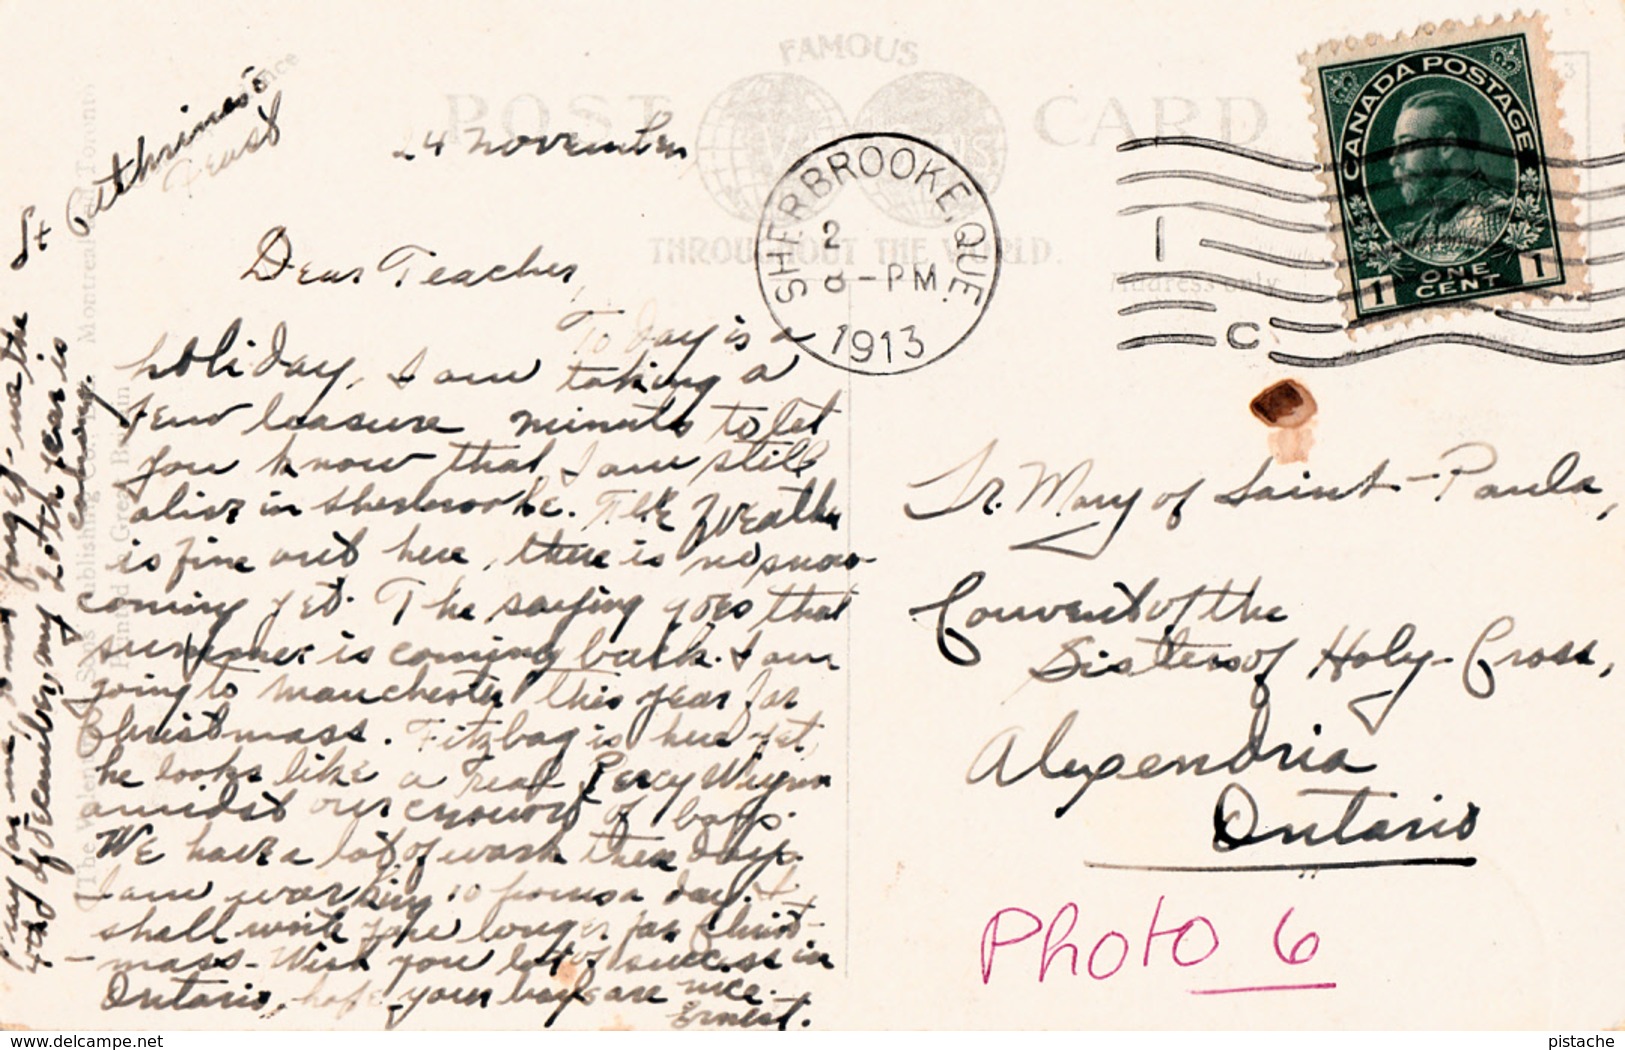 St Catherine's
Feast
24 November,
Dear Teacher,
To day is a
holiday, I am taking a
few leasure minuts to let
you know that I am still
alive in Sherbrooke. The Weather
is fine out here, there is no snow
coming yet. The saying goes that
summer is coming back. I am
going to Manchester this year for
Christmass. Fitzbag is here yet
he looks like a real Percy Wynn
amidst our crowd of boys.
We have a lot of work these days.
I am working 10 hours a day. I
shall write you longer for Christ-
mass. Wish you lot of success in
Ontario, hope your boys are nice.
Ernest.
pray for me, forget me the
4th of December, my 20th year is
coming.
POST CARD
FAMOUS
THROUGHOUT THE WORLD.
Address only
SHERBROOKE, QUE.
2
8 - PM
1913
1
C
CANADA POSTAGE
1 ONE CENT 1
Sr. Mary of Saint-Paula,
Convent of the
Sisters of Holy-Cross,
Alexendria
Ontario
Photo 6
www.delcampe.net
pistache